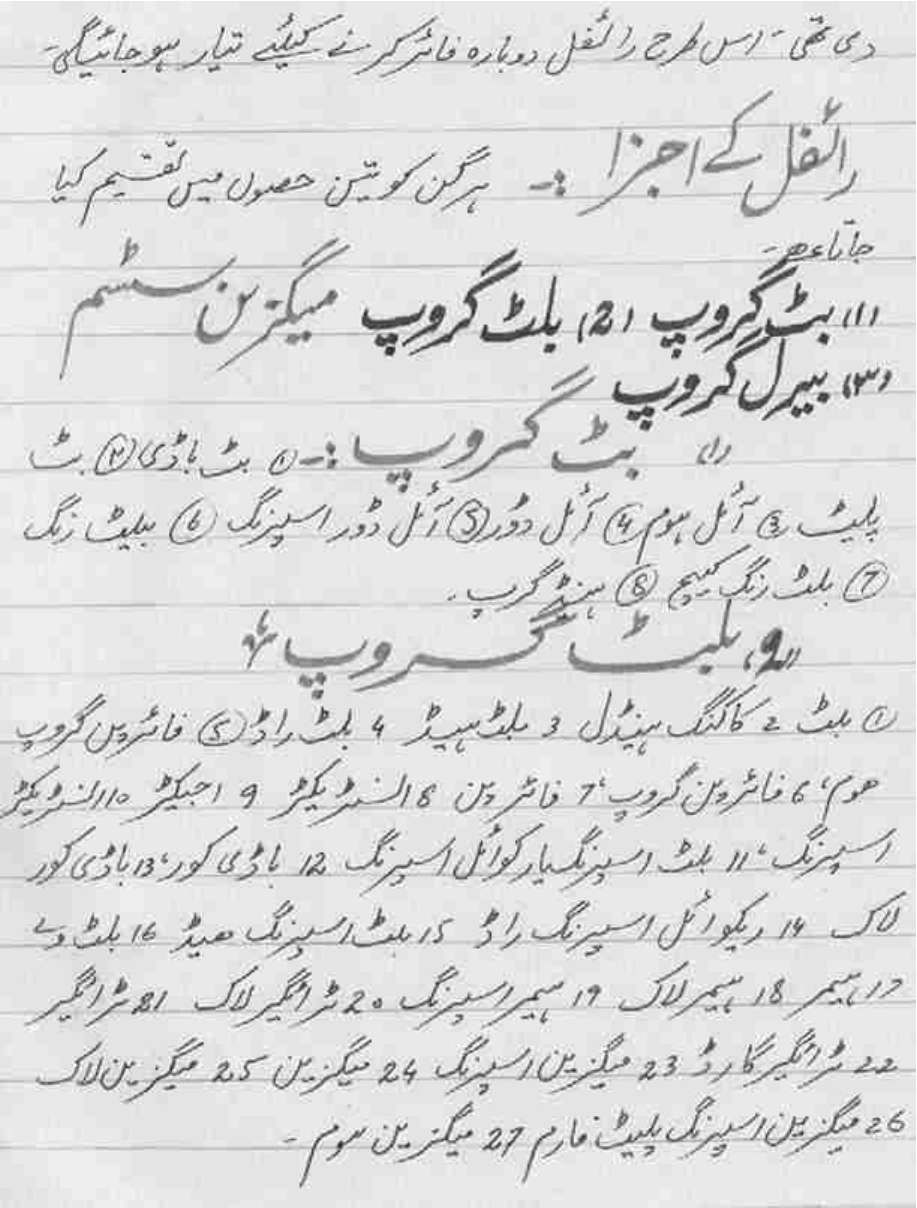 دی تھی - اس طرح رائفل دوبارہ فائر کرنے کیلئے تیار ہو جائیگی -
رائفل کے اجزا :- ہر گن کو تین حصوں میں تقسیم کیا
جاتا ھے -
(1) بٹ گروپ (2) بلٹ گروپ میگزین سسٹم
(۳) بیرل گروپ
(1) بٹ گروپ :- ① بٹ باڈی ② بٹ
پلیٹ ③ آئل ہوم ④ آئل ڈور ⑤ آئل ڈور اسپرنگ ⑥ بیلٹ رنگ
⑦ بلٹ رنگ کیچ ⑧ ہنڈ گرپ -
(2) بلٹ گروپ
① بلٹ 2 کاکنگ ہینڈل 3 بلٹ ہیڈ 4 بلٹ راڈ ⑤ فائر پن گروپ
ھوم، 6 فائر پن گروپ، 7 فائر پن 8 السٹریکٹر 9 اجیکٹر 10 السٹریکٹر
اسپرنگ، 11 بلٹ اسپرنگ یا رکوائل اسپرنگ 12 باڈی کور، 13 باڈی کور
لاک 14 ریکوائل اسپرنگ راڈ 15 بلٹ اسپرنگ ھیڈ 16 بلٹ وے
17 ہیمر 18 ہیمر لاک 19 ہیمر اسپرنگ 20 ٹرائگیر لاک 21 ٹرائگیر
22 ٹرائگیر گارڈ 23 میگزین اسپرنگ 24 میگزین 25 میگزین لاک
26 میگزین اسپرنگ پلیٹ فارم 27 میگزین ہوم -